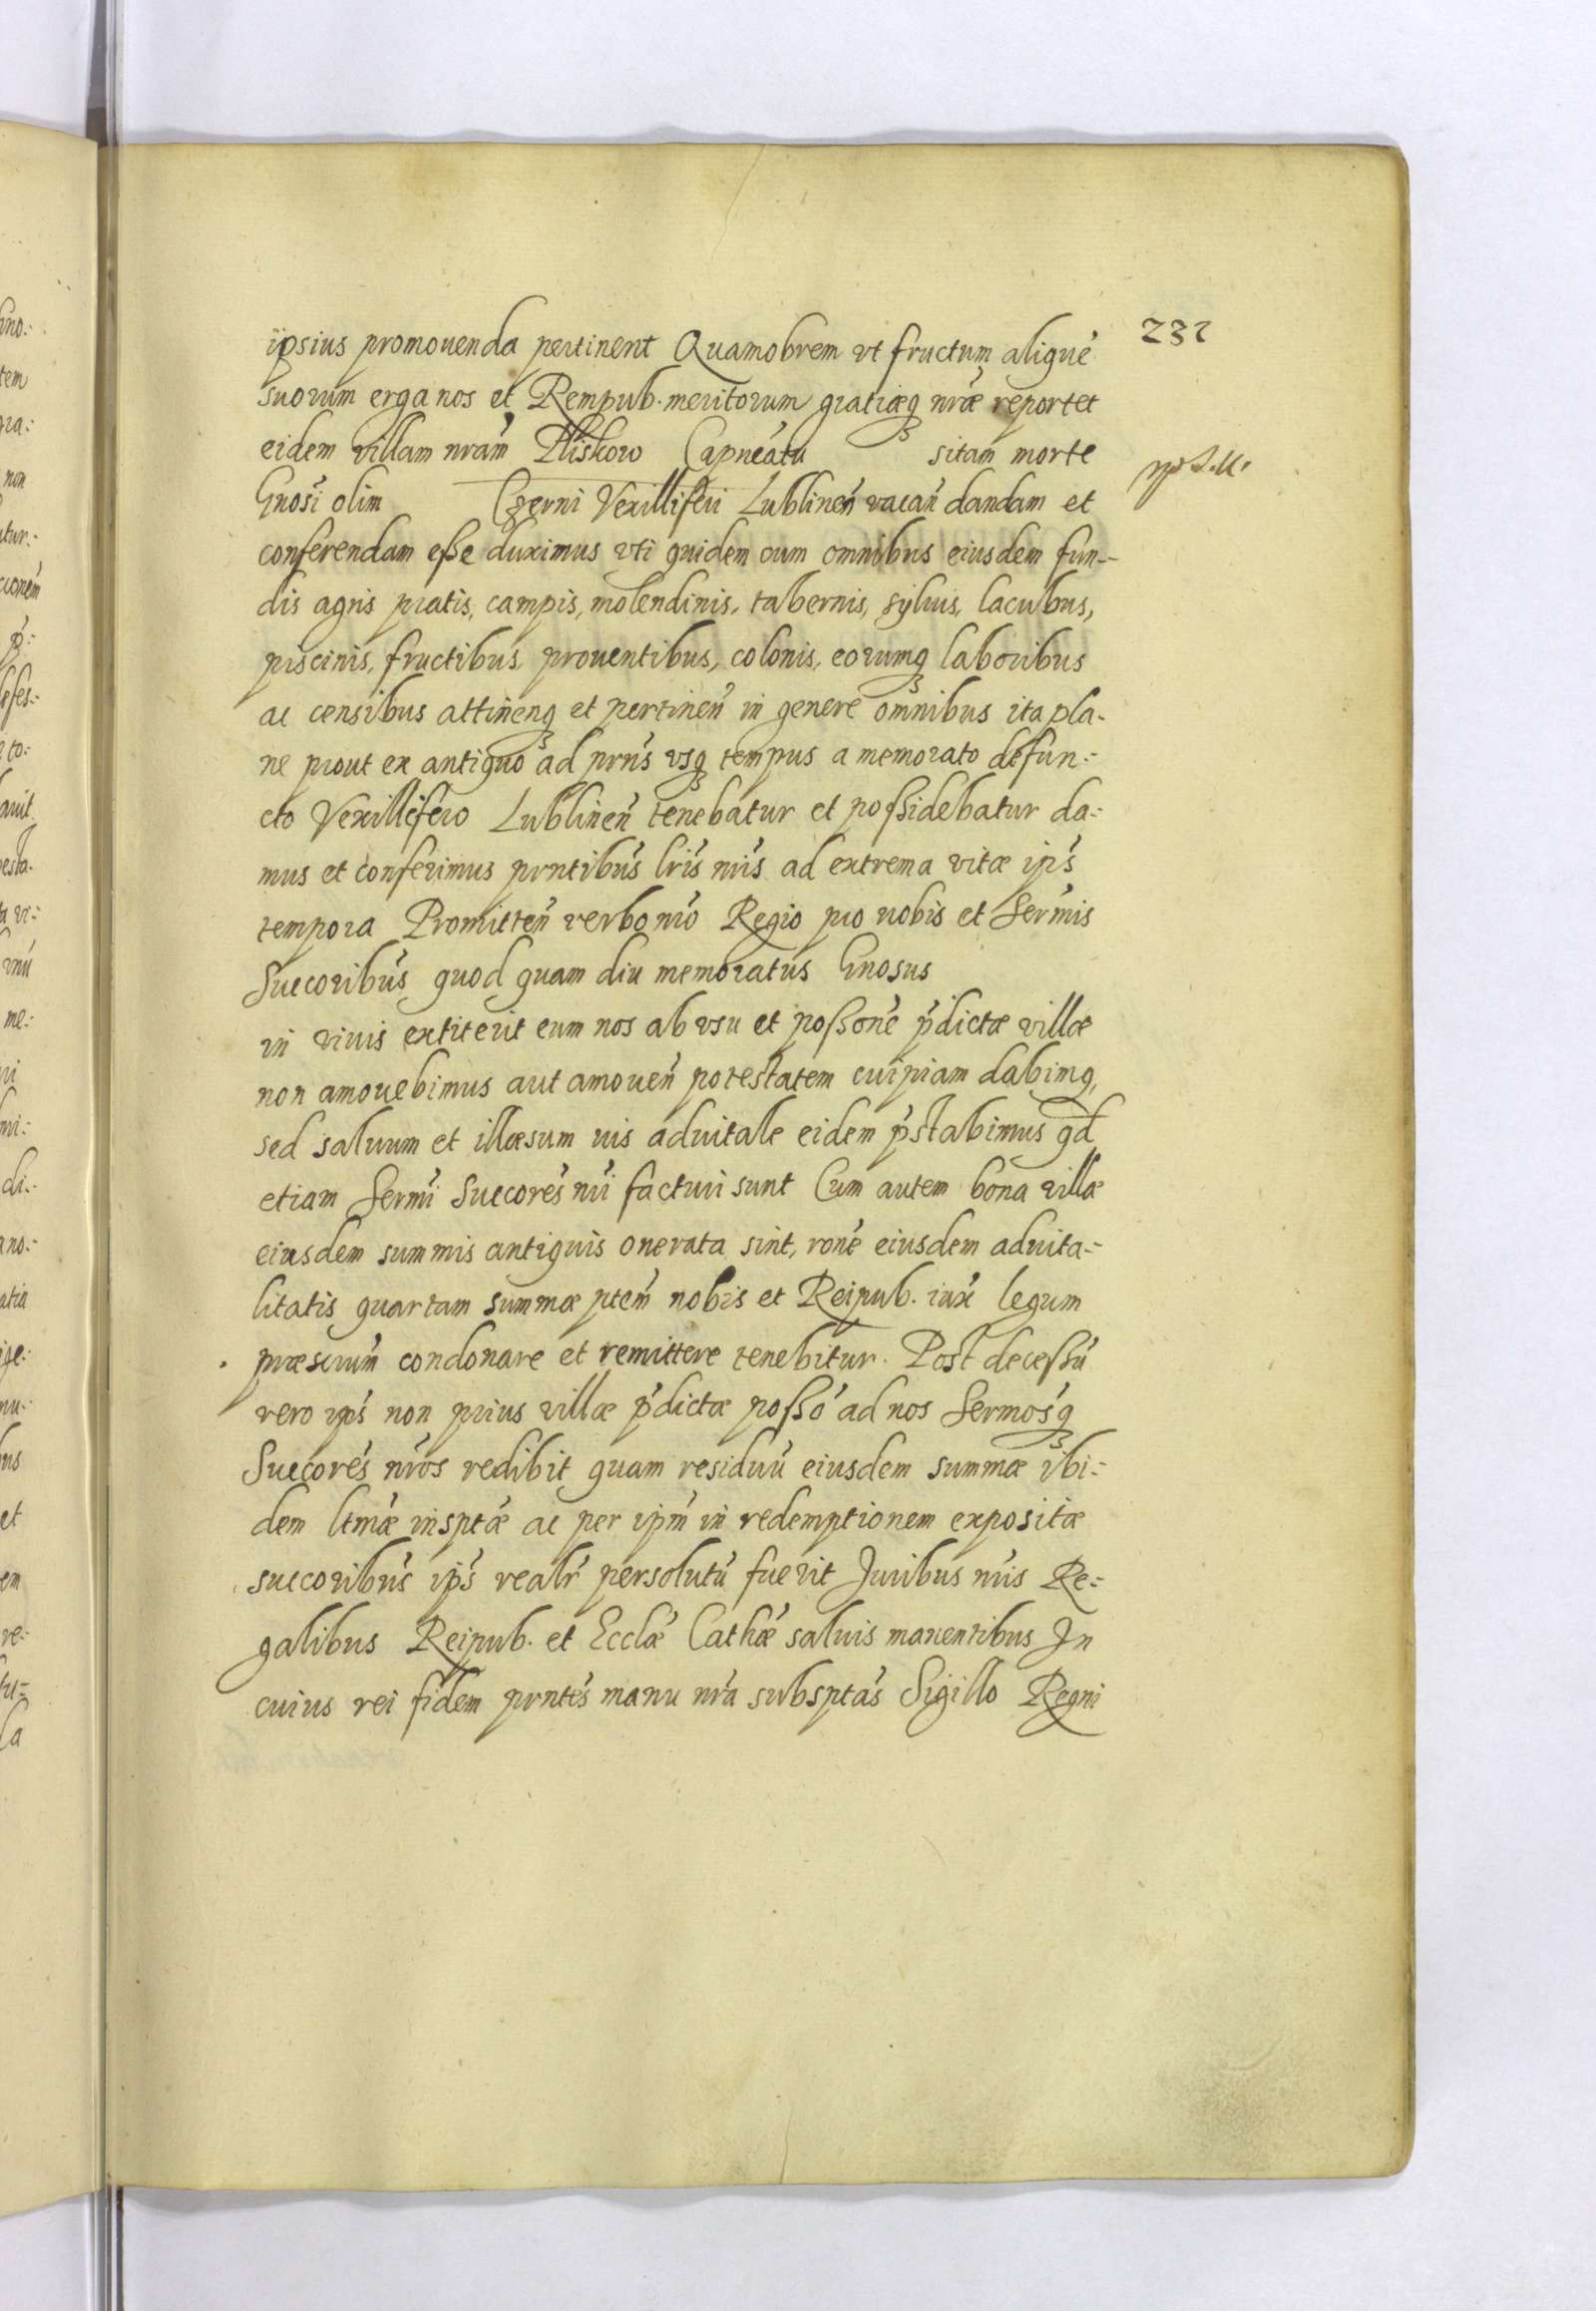 232
ipsius promouenda pertinent Quamobrem vt fructum aliquẽ
suorum erga nos et Rempub. meritorum gratiæq nr̃æ reportet
eidem villam nr̃am Pliskow Capneatu sitam morte
Gnosi olim Czerni Vexilliferi Lublineñ vacañ dandam et
conferendam eſse duximus vti quidem cum omnibus eiusdem fun-
dis agris pratis, campis, molendinis, tabernis, syluis, lacubus,
piscinis, fructibus, prouentibus, colonis, eorumq laboribus
ac censibus attinenq et pertineñ in genere omnibus ita pla-
ne prout ex antiquo ad prñs vsq tempus a memorato defun-
cto Vexillifero Lublineñ tenebatur et poſsidebatur da-
mus et conferimus prñtibus lris nr̃is ad extrema vitæ ip̃s
tempora Promitteñ verbo nr̃o Regio pro nobis et Serm̃is
Succoribus quod quam diu memoratus Gnosus
in viuis extiterit eum nos ab vsu et poſsonẽ p̃dictæ villæ
non amouebimus aut amoueñ potestatem cuipiam dabimq,
sed saluum et illæsum ius aduitale eidem p̃stabimus qd
etiam Serm̃i Succores nr̃i facturi sunt Cum autem bona villæ
eiusdem summis antiquis onerata sint, ronẽ eiusdem aduita-
litatis quartam summæ ptem̃ nobis et Reipub. iux̃ legum
præscrum̃ condonare et remittere tenebitur. Post deceſsũ
vero ip̃s non prius villæ p̃dictæ poſsõ ad nos Sermosq
Succores nr̃os redibit quam residuũ eiusdem summæ ibi-
dem ltmæ insptæ ac per ipm̃ in redemptionem expositæ
succoribus ip̃s realr̃ persolutũ fuerit Juribus nr̃is Re-
galibus Reipub. et Ecclæ Cathæ saluis manentibus In
cuius rei fidem prñtes manu nr̃a subsptas Sigillo Regni